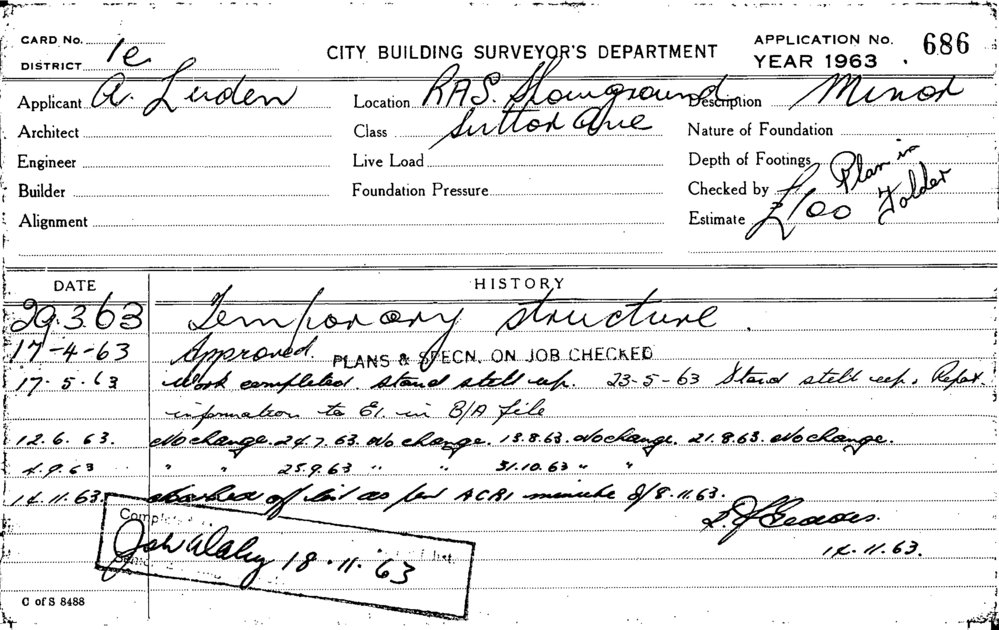 CARD No.
DISTRICT 1e
CITY BUILDING SURVEYOR'S DEPARTMENT
APPLICATION No. 686
YEAR 1963
Applicant A. Linden
Location RAS. Showground
Description Minor
Architect
Class Sutton Ave
Nature of Foundation
Engineer
Live Load
Depth of Footings
Builder
Foundation Pressure
Checked by
Plan in
Folder
Alignment
Estimate £100
DATE HISTORY
29.3.63 Temporary structure.
17-4-63 Approved. PLANS & SPECN. ON JOB CHECKED
17.5.63 Work completed stand still up. 23-5-63 Stand still up. Report
information to E1. in B/A file
12.6.63. No change. 24.7.63. No change. 13.8.63. No change. 21.8.63. No change.
4.9.63 " " 25.9.63 " " 31.10.63 " "
14.11.63. of list as per minute of 8.11.63.
14.11.63.
18.11.63
C of S 8488